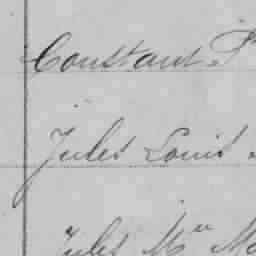 Constant P
Jules Louis
Jules Mie M